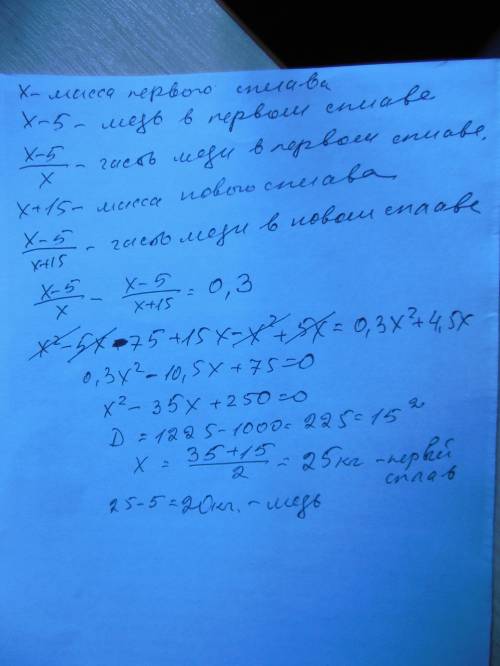 x - масса первого сплава
x-5 - медь в первом сплаве
(x-5)/x - часть меди в первом сплаве.
x+15 - масса нового сплава
(x-5)/(x+15) - часть меди в новом сплаве
(x-5)/x - (x-5)/(x+15) = 0,3
x² - 5x - 75 + 15x - x² + 5x = 0,3x² + 4,5x
0,3x² - 10,5x + 75 = 0
x² - 35x + 250 = 0
D = 1225 - 1000 = 225 = 15²
x = (35+15)/2 = 25кг - первый
сплав
25-5 = 20кг. - медь